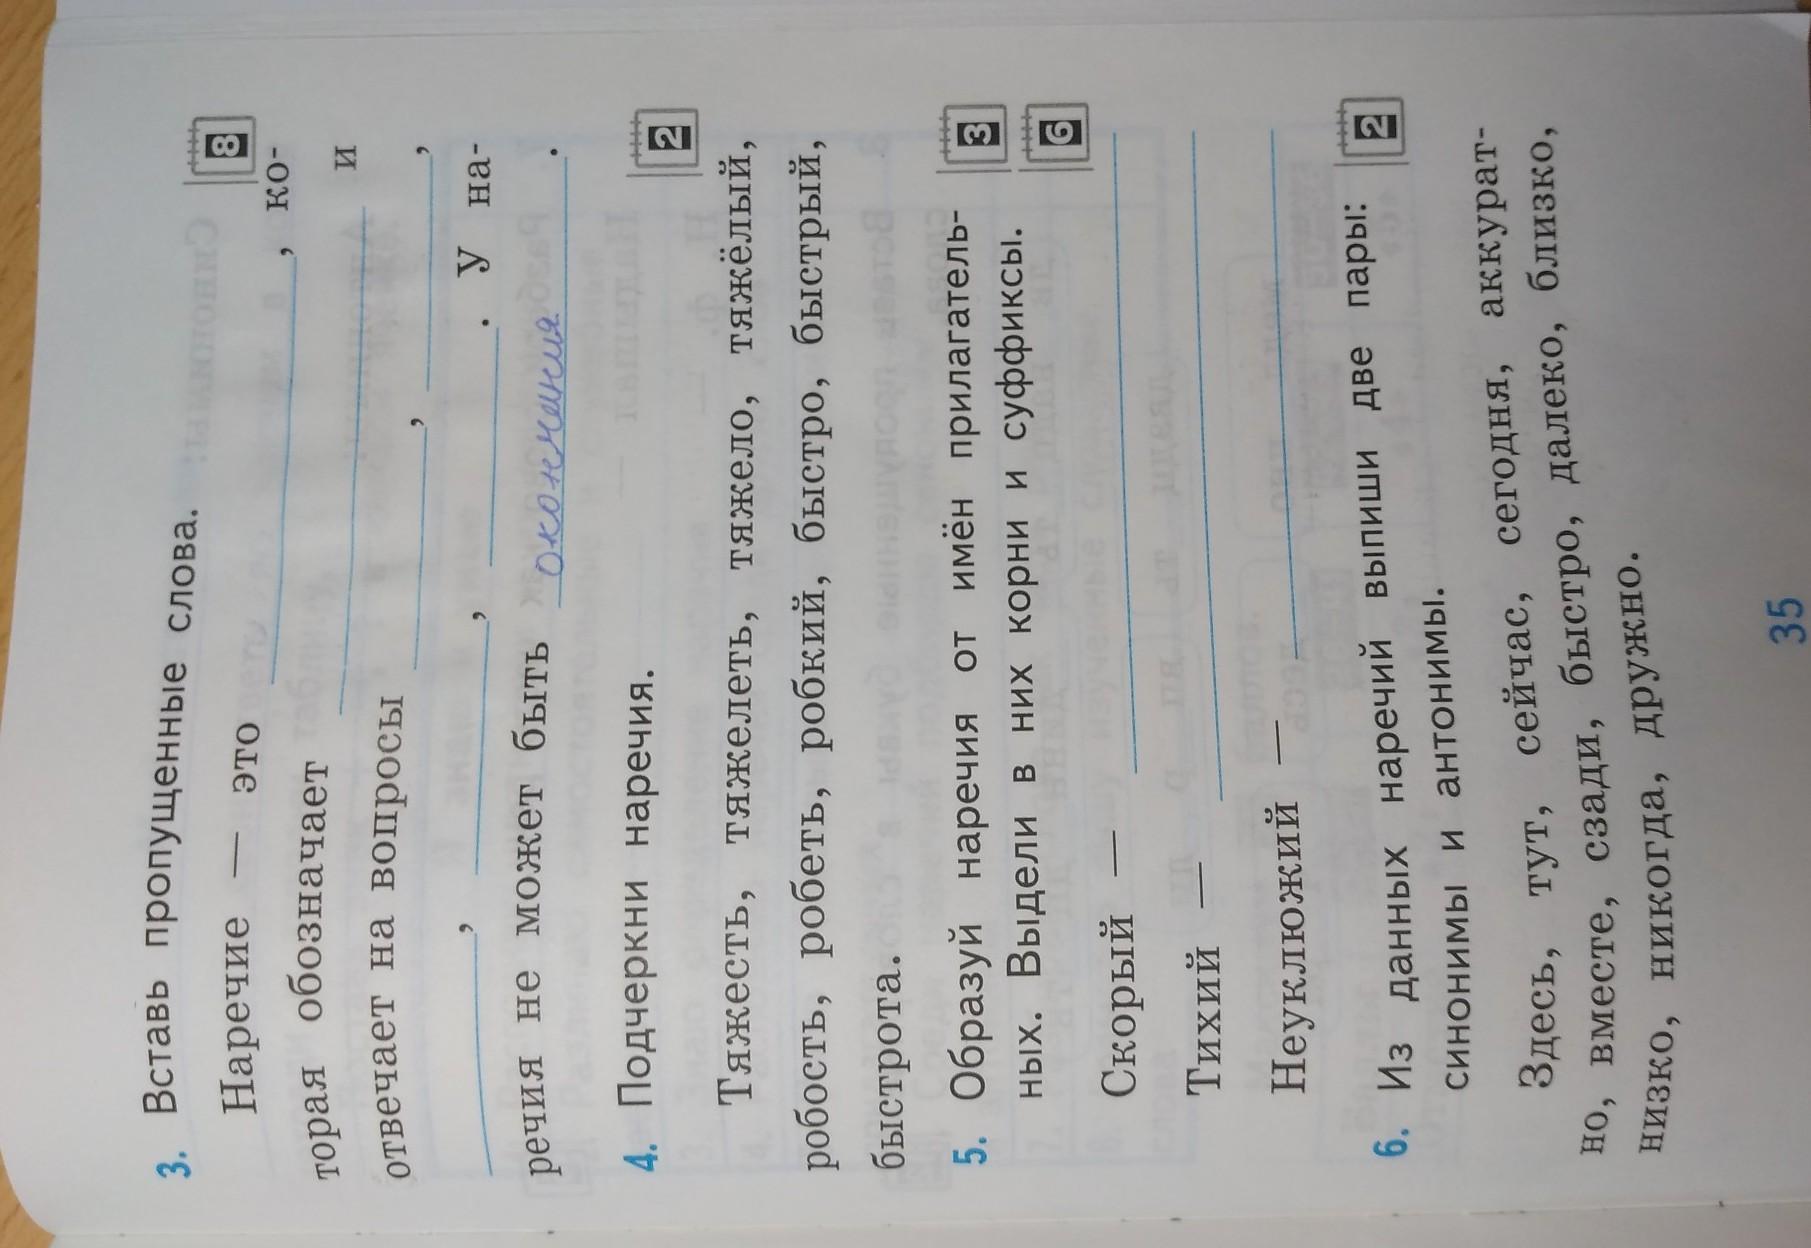 3. Вставь пропущенные слова.
8
Наречие — это , ко-
торая обозначает и
отвечает на вопросы , ,
, , . У на-
речия не может быть окончания.
4. Подчеркни наречия.
2
Тяжесть, тяжелеть, тяжело, тяжёлый,
робость, робеть, робкий, быстро, быстрый,
быстрота.
5. Образуй наречия от имён прилагатель-
3
ных. Выдели в них корни и суффиксы.
6
Скорый —
Тихий —
Неуклюжий —
6. Из данных наречий выпиши две пары:
2
синонимы и антонимы.
Здесь, тут, сейчас, сегодня, аккурат-
но, вместе, сзади, быстро, далеко, близко,
низко, никогда, дружно.
35